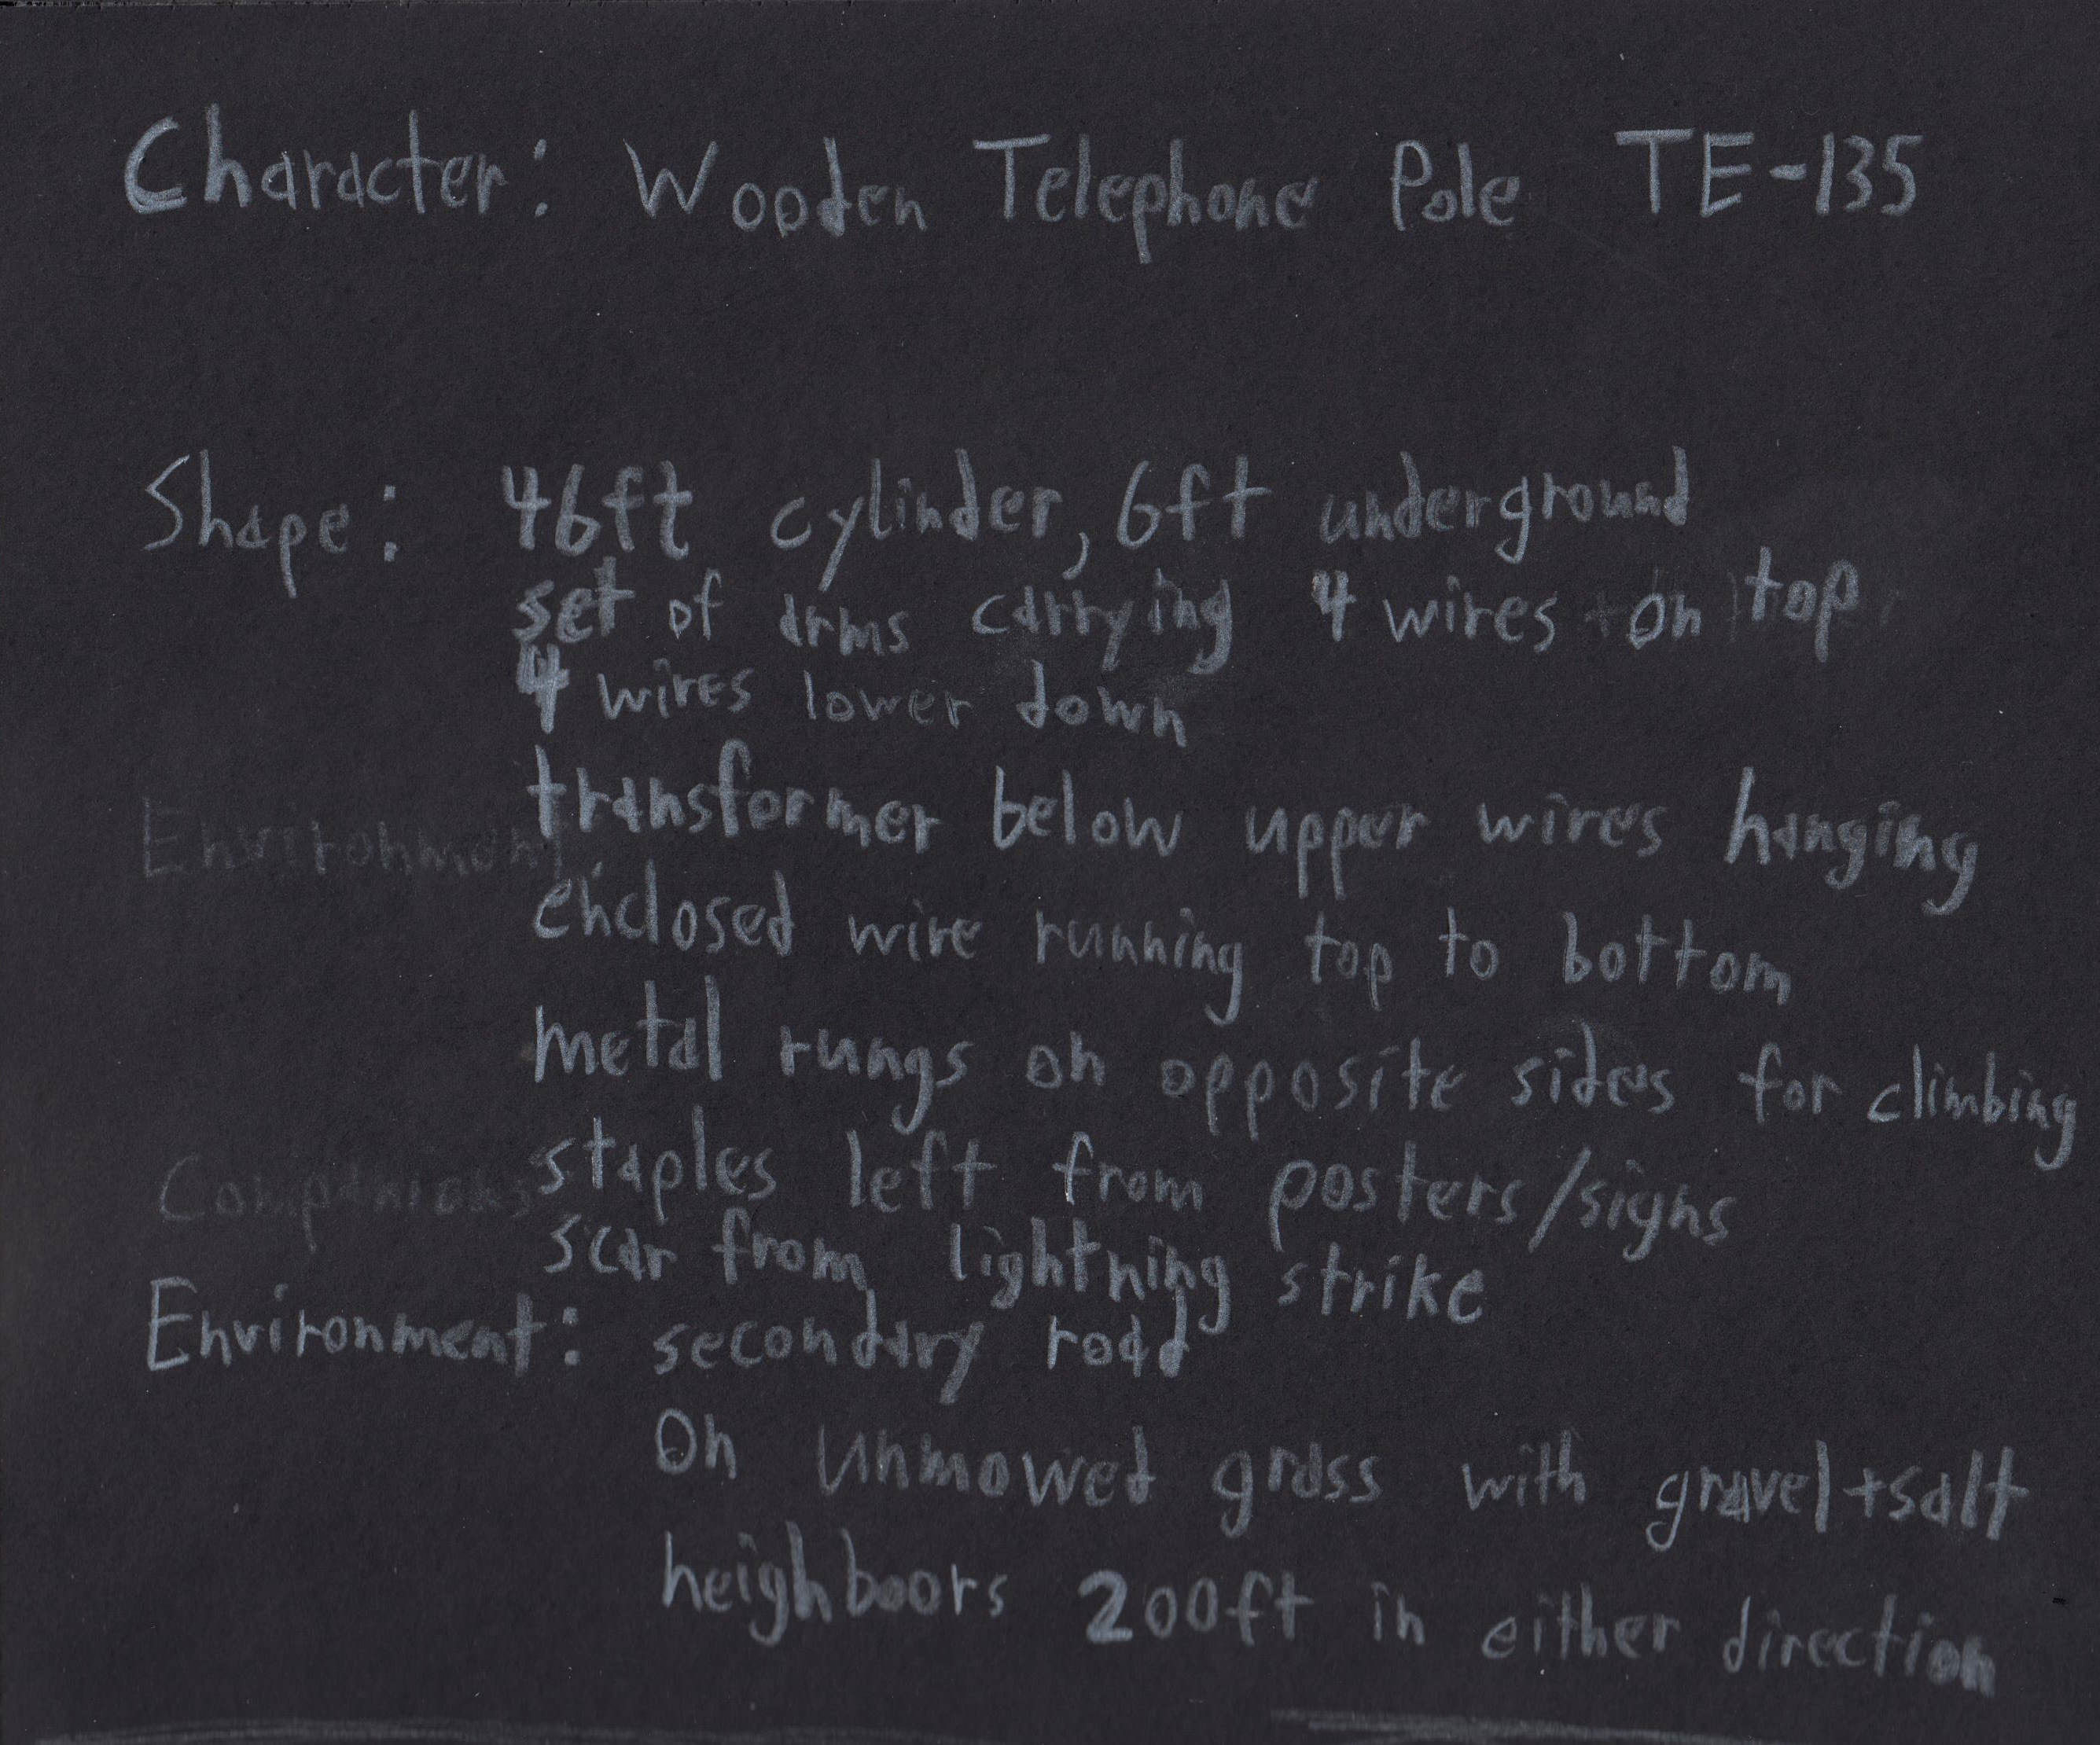 Character: Wooden Telephone Pole TE-135
Shape: 46ft cylinder, 6ft underground
set of arms carrying 4 wires on top
4 wires lower down
transformer below upper wires hanging
Environment:
enclosed wire running top to bottom
metal rungs on opposite sides for climbing
Companions
staples left from posters/signs
scar from lightning strike
Environment: secondary road
On unmowed grass with gravel+salt
neighboors 200ft in either direction